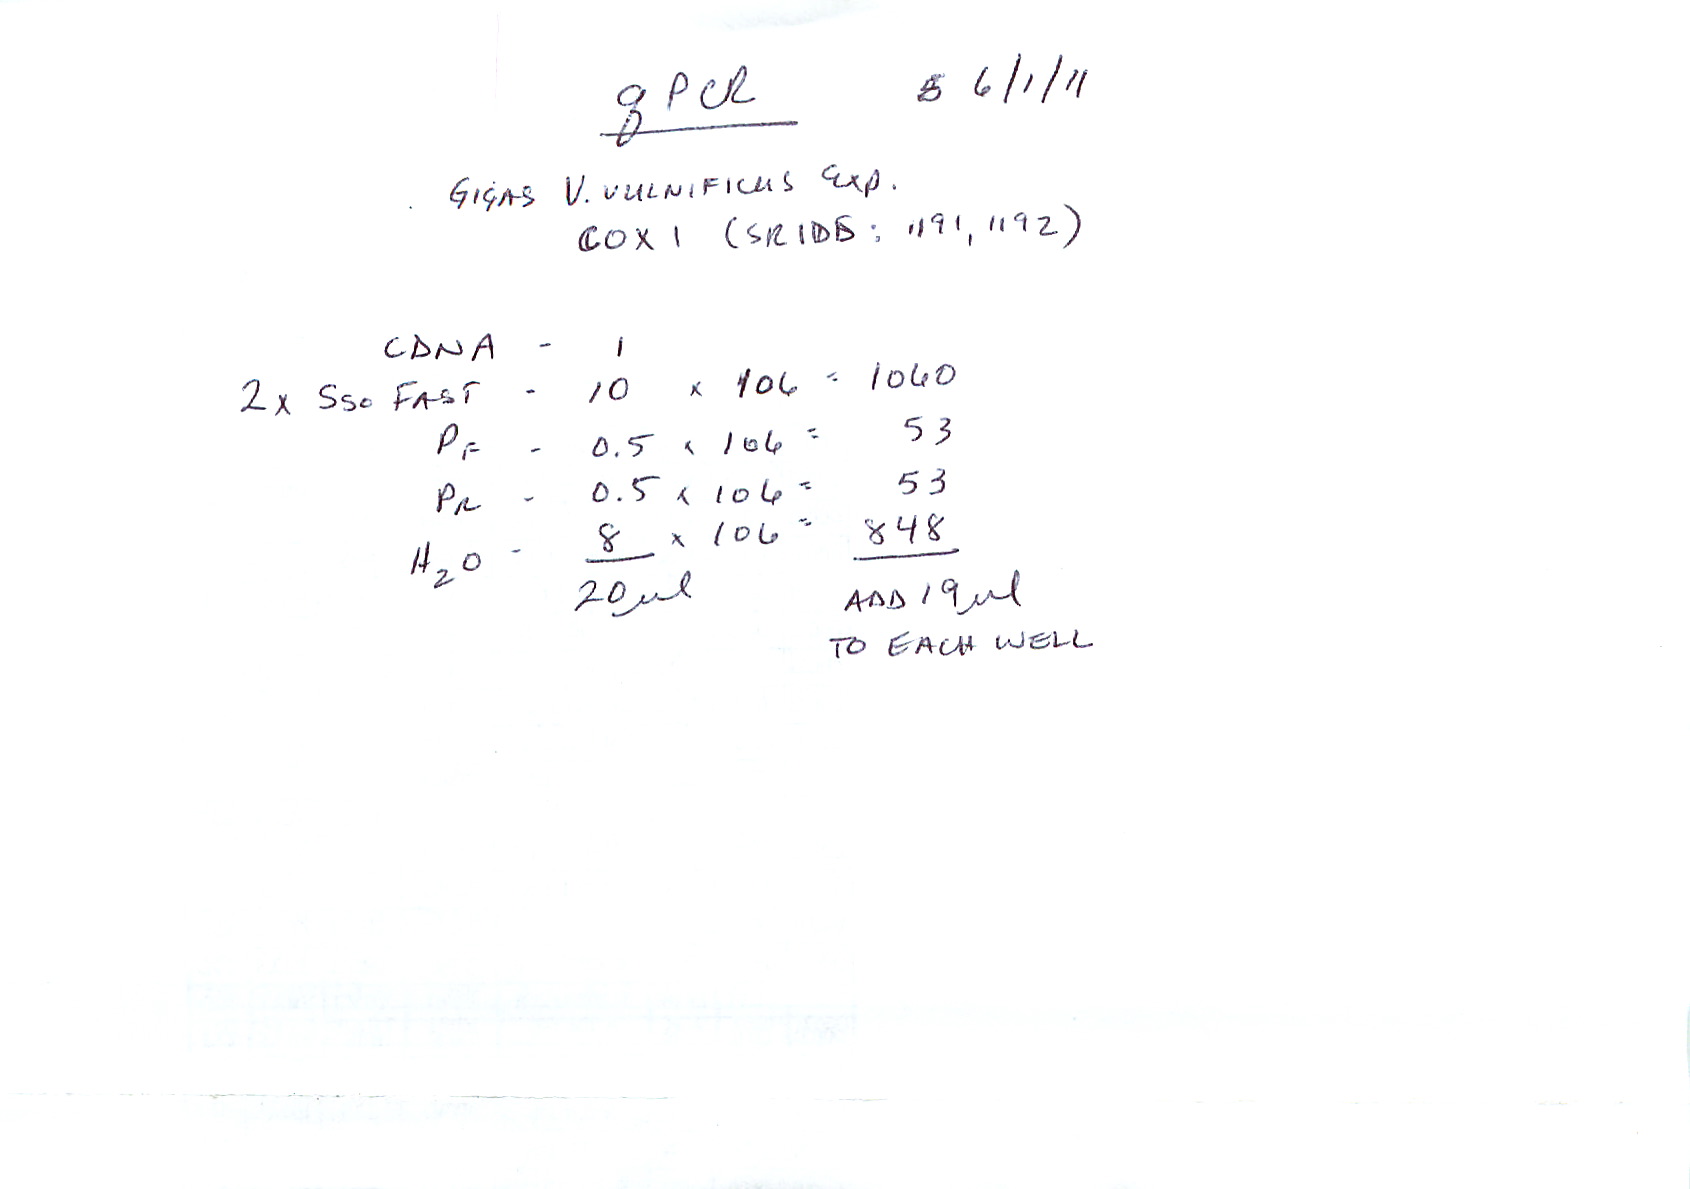 qPCR 6/1/11
GIGAS V. VULNIFICUS Exp.
COX1 (SRIDS: 1191, 1192)
CDNA - 1
2x Sso FAST - 10 x 106 = 1060
PF - 0.5 x 106 = 53
PR - 0.5 x 106 = 53
H2O - 8 x 106 = 848
20µl ADD 19µl
TO EACH WELL